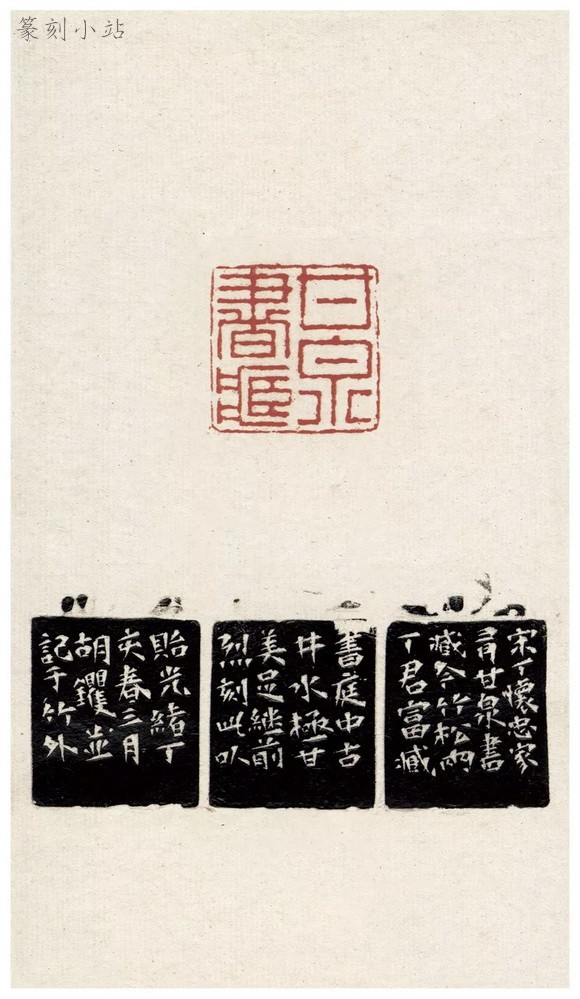 篆刻小站
甘泉
書藏
宋丁懷忠家
有甘泉書
藏今竹松兩
丁君富藏
書庭中古
井水極甘
美足繼前
烈刻此以
貽光緒丁
亥春三月
胡钁並
記于竹外